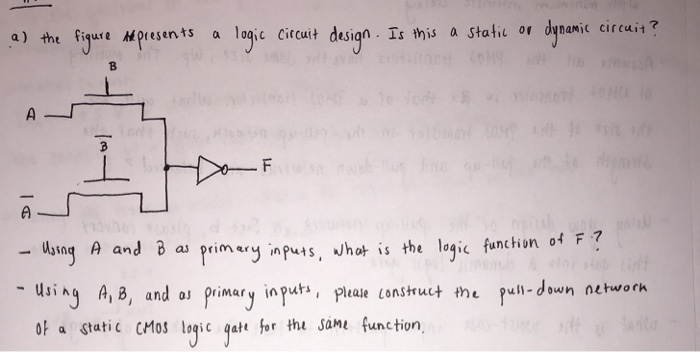 a) the figure represents a logic circuit design. Is this a static or dynamic circuit?
B
A
B̅
F
A̅
- Using A and B as primary inputs, what is the logic function of F?
- Using A, B, and as primary inputs, please construct the pull-down network
of a static CMOS logic gate for the same function.